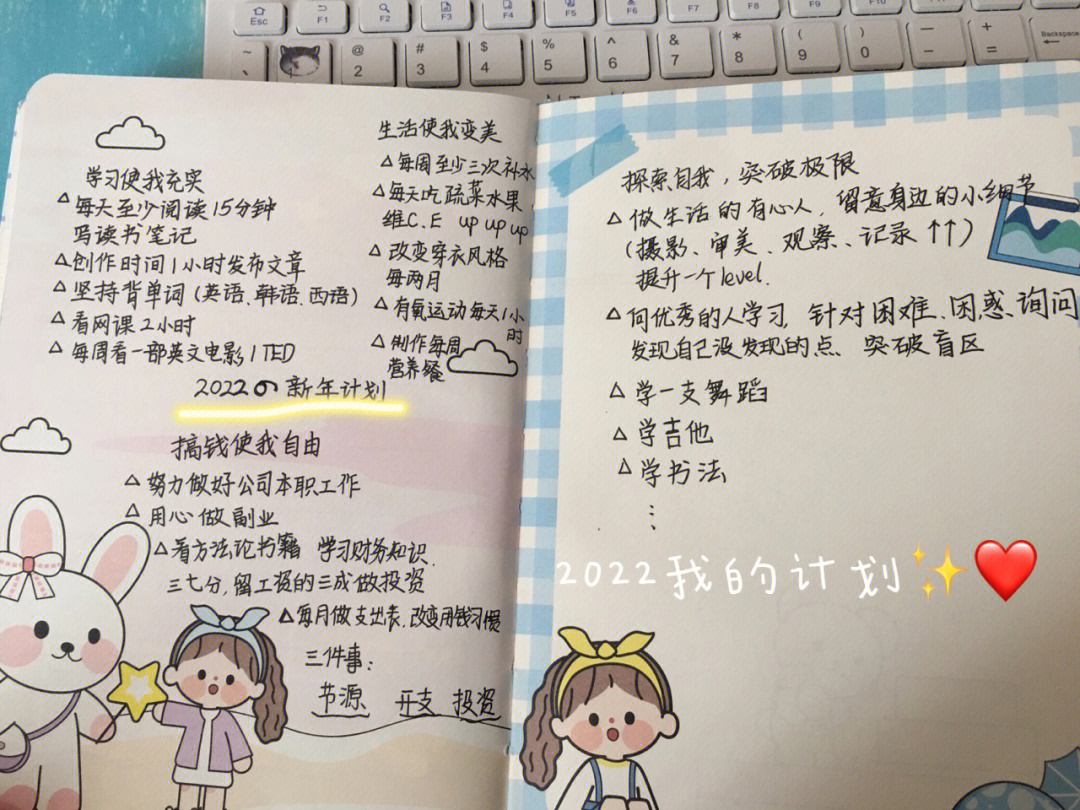 Esc F1 F2 F3 F4 F5 F6 F7 F8 F9 F10
~ @ 2 # 3 $ 4 % 5 ^ 6 & 7 * 8 ( 9 ) 0 — - + = Backspace
学习使我充实
△每天至少阅读15分钟
写读书笔记
△创作时间1小时发布文章
△坚持背单词(英语、韩语、西语)
△看网课2小时
△每周看一部英文电影/TED
生活使我变美
△每周至少三次补水
△每天吃蔬菜水果,
维C.E up up up
△改变穿衣风格
每两月
△有氧运动每天1小
时
△制作每周
营养餐
2022の新年计划
搞钱使我自由
△努力做好公司本职工作
△用心做副业
△看方法论书籍 学习财务知识.
三七分,留工资的三成做投资
△每月做支出表.改变用钱习惯
三件事:
节源 开支 投资
探索自我,突破极限
△做生活的有心人,留意身边的小细节
(摄影、审美、观察、记录↑↑)
提升一个level.
△向优秀的人学习,针对困难、困惑、询问
发现自己没发现的点、突破盲区
△学一支舞蹈
△学吉他
△学书法
⋮
2022我的计划✨❤️